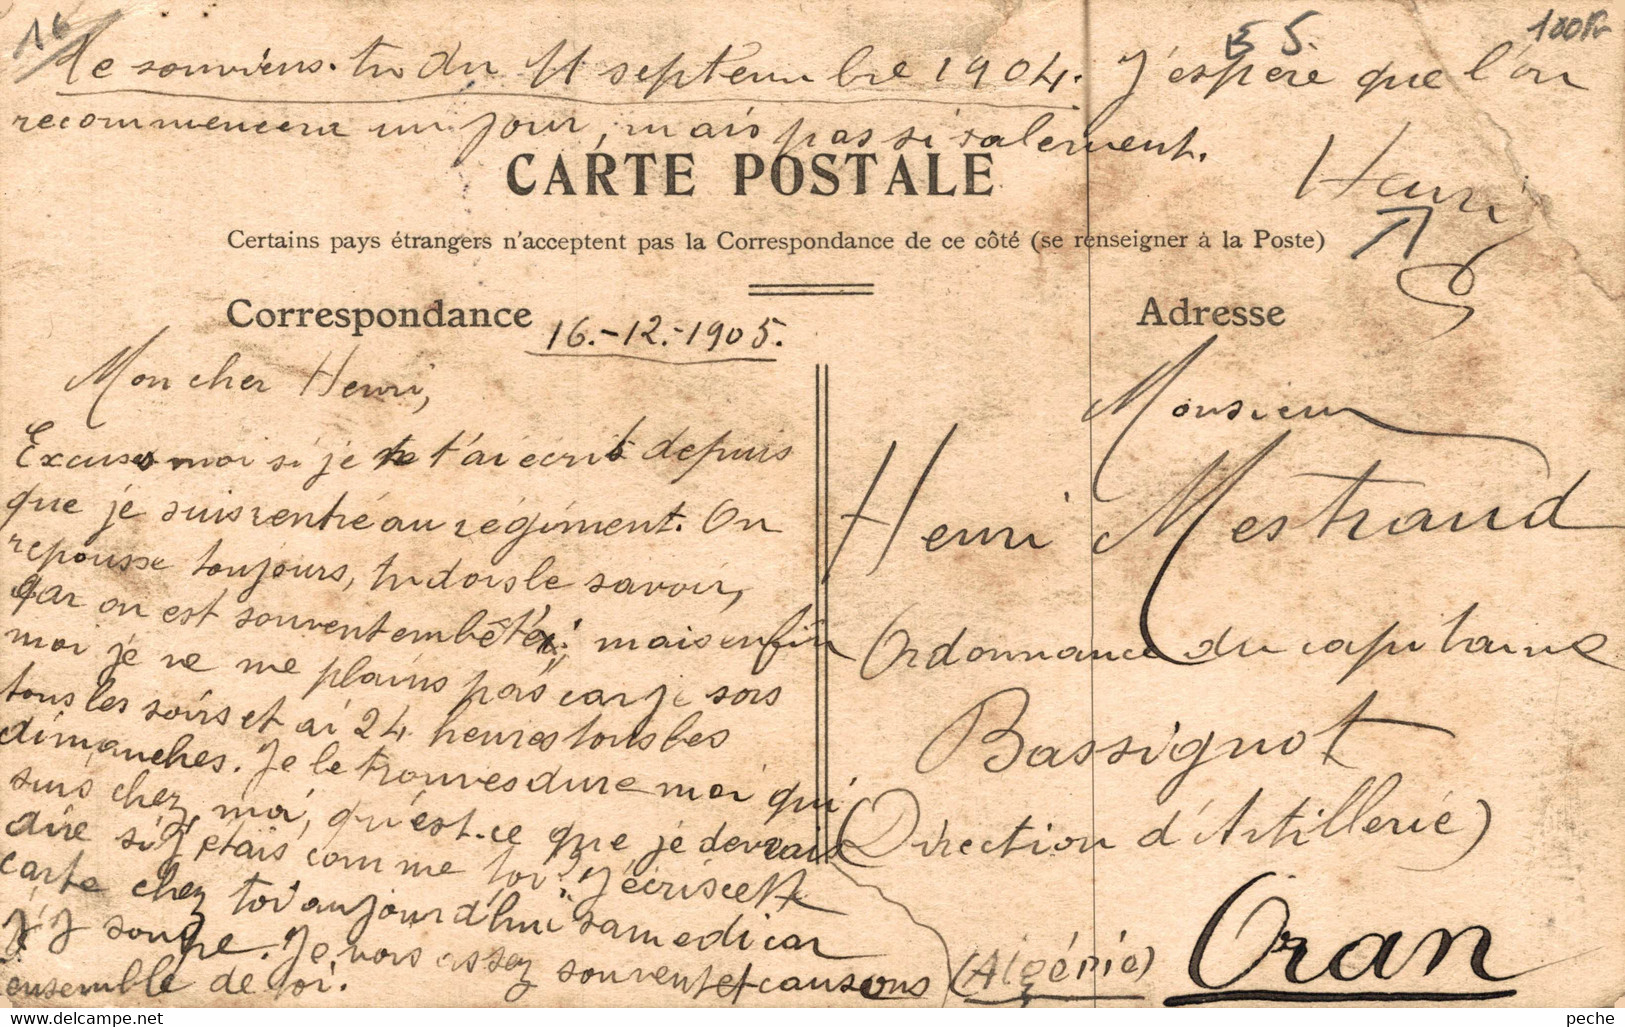 16
5 5.
100 Fr
Te souviens-tu du 11 septembre 1904. J'espère que l'on
recommencera un jour, mais pas si salement.
Henri
CARTE POSTALE
Certains pays étrangers n'acceptent pas la Correspondance de ce côté (se renseigner à la Poste)
Correspondance
16.-12.-1905.
Mon cher Henri,
Excuses moi si je ne t'ai écrit depuis
que je suis rentré au régiment. On
repousse toujours, tu dois le savoir,
car on est souvent embêté; mais enfin
moi je ne me plains pas car je sors
tous les soirs et ai 24 heures tous les
dimanches. Je le trouves dure moi qui
suis chez moi, qu'est-ce que je devrais
dire si j'étais comme toi? J'écris cette
carte chez toi aujourd'hui samedi car
j'y soupe. Je vois assez souvent et causons
ensemble de toi.
Adresse
Monsieur
Henri Mestraud
Ordonnance du capitaine
Bassignot
(Direction d'Artillerie)
Oran
(Algérie)
peche